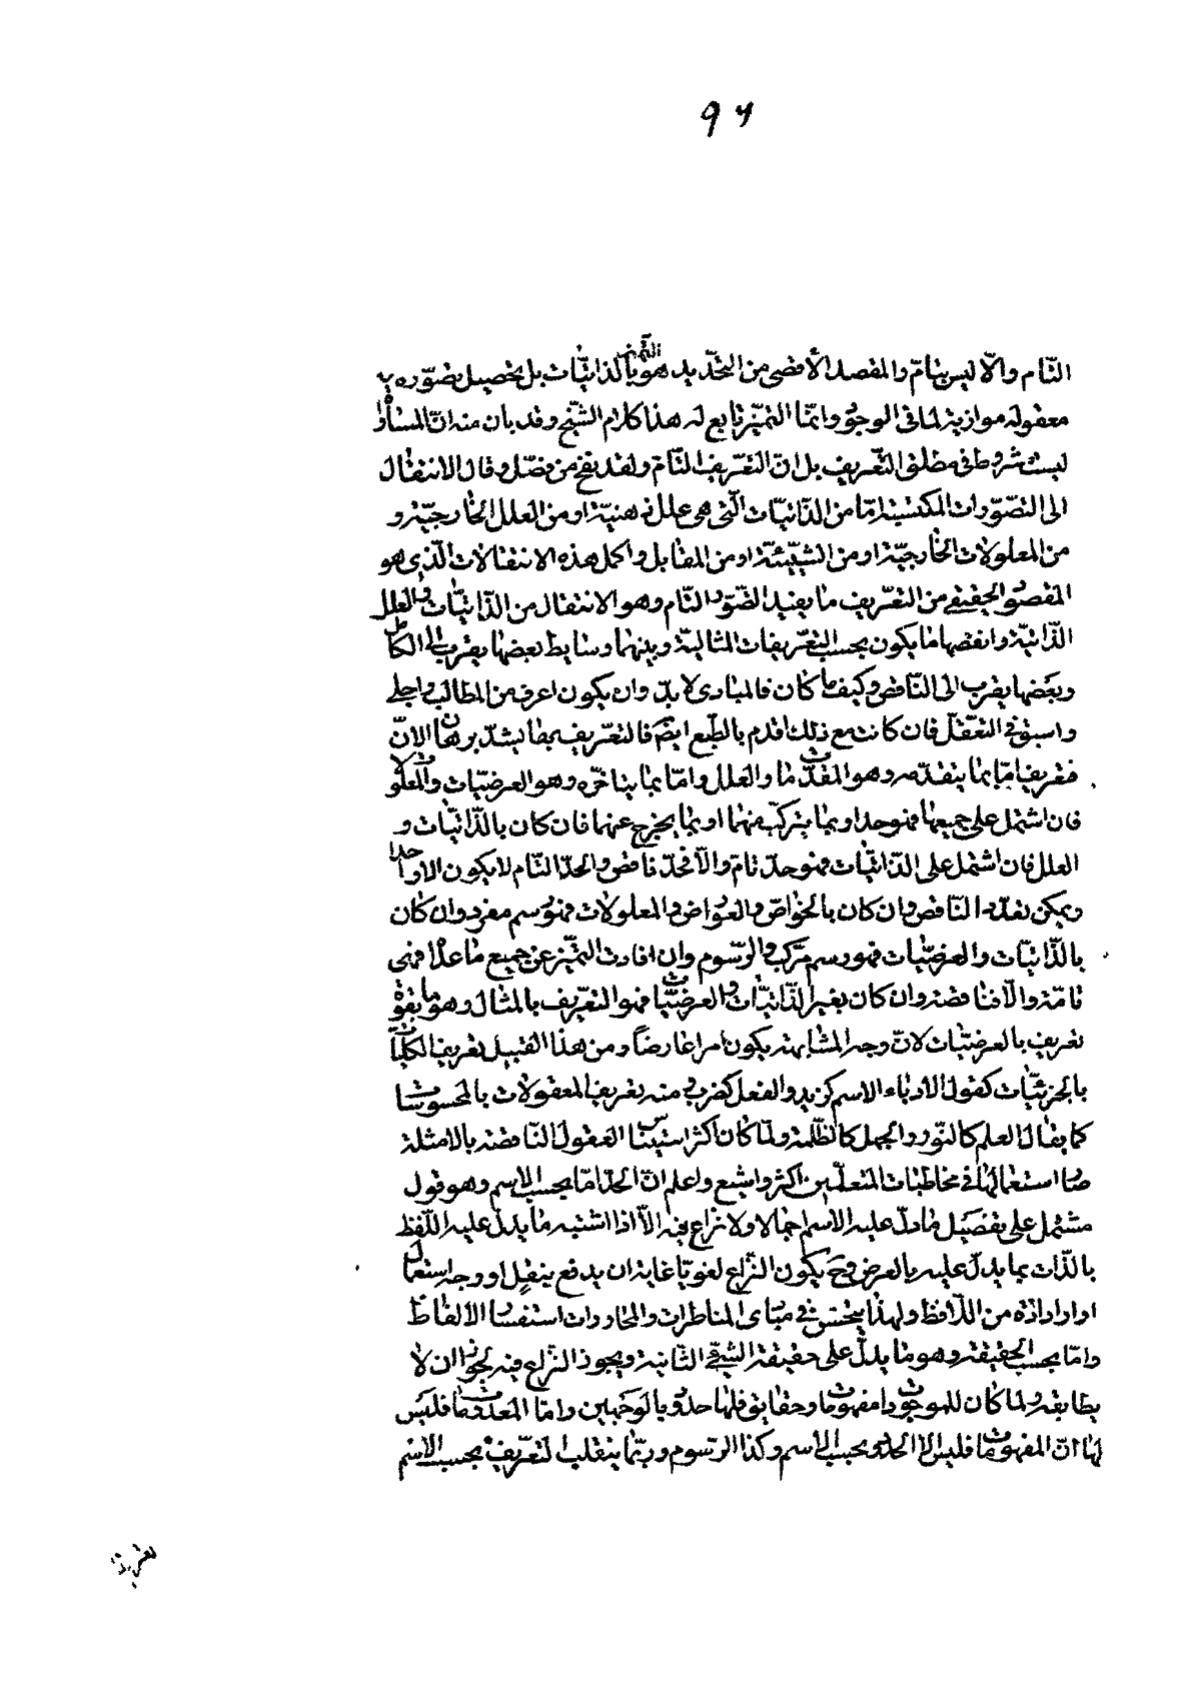 ٩٢
التّام والّا ليس بتامّ والمقصد الأقصى من التحّديد هو التميّز بالذاتيّات بل تحصيل تصوّره
معقوله موازية لما فى الوجود وانمّا التميّز تابع له هذا كلام الشّيخ وقد بان منه انّ المساواة
ليست شروطا فى مطلق التّعريف بل انّ التّعريف التّام ولقد من فصّل وقال الانتقال
الى التصّورات المكتسبة امّا من الذّاتيّات الّتى هى علل ذهنيّة او من العلل الخارجيّة و
من المعلولات الخارجيّة او من الشّبيه او من المقابل واكمل هذه الانتقالات الّذى هو
المقصود الحقيقى من التّعريف ما يفيد التّصوّر التّام وهو الانتقال من الذّاتيّات والعلل
الذّاتيّة وانقصها ما يكون بحسب التّعريفات المثاليّة وبينهما وسايط بعضها يقرب الى الكامل
وبعضها يقرب الى النّاقص وكيف ما كان فالمبادى لا بدّ وان يكون اعرف من المطالب واجلى
واسبق فى التعّقل فان كانت مع ذلك اقدم بالطّبع ايضا فالتعّريف بها يشبه برهان الانّ
فتعريفها امّا بما يتقدّمه وهو المقدّمات والعلل وامّا بما يتاخّره وهو العرضيّات والمعلولات
فان اشتمل على جميعها فهو حدا وبما يتركّب منهما او بما يخرج عنهما فان كان بالذّاتيّات و
العلل فان اشتمل على الذّاتيّات فهو حدّ تامّ والّا فحدّ ناقص والحدّ التّام لا يكون الا واحدا
ويمكن تعدّد النّاقص وان كان بالخواصّ والعوارض والمعلولات فهو رسم مفرد وان كان
بالذّاتيّات والعرضيّات فهو رسم مركّب والرّسوم وان افادت التّميّز عن جميع ما عداه فهى
تامّة والّا فناقصة وان كان بغير الذّاتيّات والعرضيّات فهو التّعريف بالمثال وهو بقوّة
تعريف بالعرضيّات لانّ وجه المشابهة يكون امرا عارضاً ومن هذا القبيل تعريف الكليّات
بالجزئيّات كقول الادباء الاسم كزيد والفعل كضرب ومنه تعريف المعقولات بالمحسوسات
كما يقال العلم كالنّور والجهل كالظّلمة ولمّا كان اكثر استيناس العقول النّاقصة بالامثلة
صار استعمالها فى مخاطبات المتعلّمين اكثر واشيع واعلم انّ الحدّ امّا بحسب الاسم وهو قول
مشتمل على تفصيل ما دلّ عليه الاسم اجمالا ولا نزاع فيه الّا اذا اشتبه ما يدلّ عليه اللّفظ
بالذّات بما يدلّ عليه بالعرض وح يكون النّزاع لغويّا غايته ان يدفع بنقل او وجه استعمال
او ارادة من اللّافظ ولهذا يحسن فى مبادى المناظرات والمحاورات استفسار الالفاظ
وامّا بحسب الحقيقة وهو ما يدلّ على حقيقة الشّيئ الثّابتة ويجوز النّزاع فيه لجواز ان لا
يطابقه ولمّا كان للموجودات مفهومات وحقايق فلها حدود بالوجهين وامّا المعدومات فليس
لها الّا المفهومات فليس الا الحدود بحسب الاسم وكذا الرّسوم وربّما ينقلب التّعريف بحسب الاسم